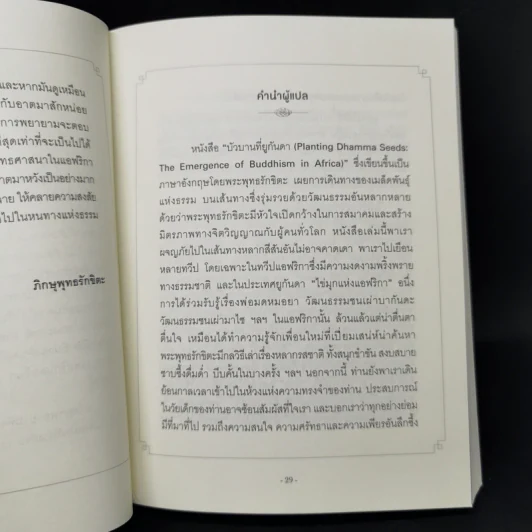 และหากมันดูเหมือน
กับอาตมาสักหน่อย
การพยายามจะตอบ
ที่สุดเท่าที่จะเป็นไปได้
พุทธศาสนาในแอฟริกา
อาตมาหวังเป็นอย่างมาก
ให้คลายความสงสัย
ไปในหนทางแห่งธรรม
ภิกษุพุทธรักขิตะ
คำนำผู้แปล
หนังสือ "บัวบานที่ยูกันดา (Planting Dhamma Seeds:
The Emergence of Buddhism in Africa)" ซึ่งเขียนขึ้นเป็น
ภาษาอังกฤษโดยพระพุทธรักขิตะ เผยการเดินทางของเมล็ดพันธุ์
แห่งธรรม บนเส้นทางซึ่งรุ่มรวยด้วยวัฒนธรรมอันหลากหลาย
ด้วยว่าพระพุทธรักขิตะมีหัวใจเปิดกว้างในการสมาคมและสร้าง
มิตรภาพทางจิตวิญญาณกับผู้คนทั่วโลก หนังสือเล่มนี้พาเรา
ผจญภัยไปในเส้นทางหลากสีสันอันไม่อาจคาดเดา พาเราไปเยือน
หลายทวีป โดยเฉพาะในทวีปแอฟริกาซึ่งมีความงดงามพริ้งพราย
ทางธรรมชาติ และในประเทศยูกันดา "ไข่มุกแห่งแอฟริกา" อนึ่ง
การได้ร่วมรับรู้เรื่องพ่อมดหมอยา วัฒนธรรมชนเผ่าบากันดะ
วัฒนธรรมชนเผ่ามาไซ ฯลฯ ในแอฟริกานั้น ล้วนแล้วแต่น่าตื่นตา
ตื่นใจ เหมือนได้ทำความรู้จักเพื่อนใหม่ที่เปี่ยมเสน่ห์น่าค้นหา
พระพุทธรักขิตะมีกลวิธีเล่าเรื่องหลากรสชาติ ทั้งสนุกขำขัน สงบสบาย
ซาบซึ้งดื่มด่ำ บีบคั้นในบางครั้ง ฯลฯ นอกจากนี้ ท่านยังพาเราเดิน
ย้อนกาลเวลาเข้าไปในห้วงแห่งความทรงจำของท่าน ประสบการณ์
ในวัยเด็กของท่านอาจซ้อนสัมผัสที่ใจเรา และบอกเราว่าทุกอย่างย่อม
มีที่มาที่ไป รวมถึงความสนใจ ความศรัทธาและความเพียรอันลึกซึ้ง
- 29 -